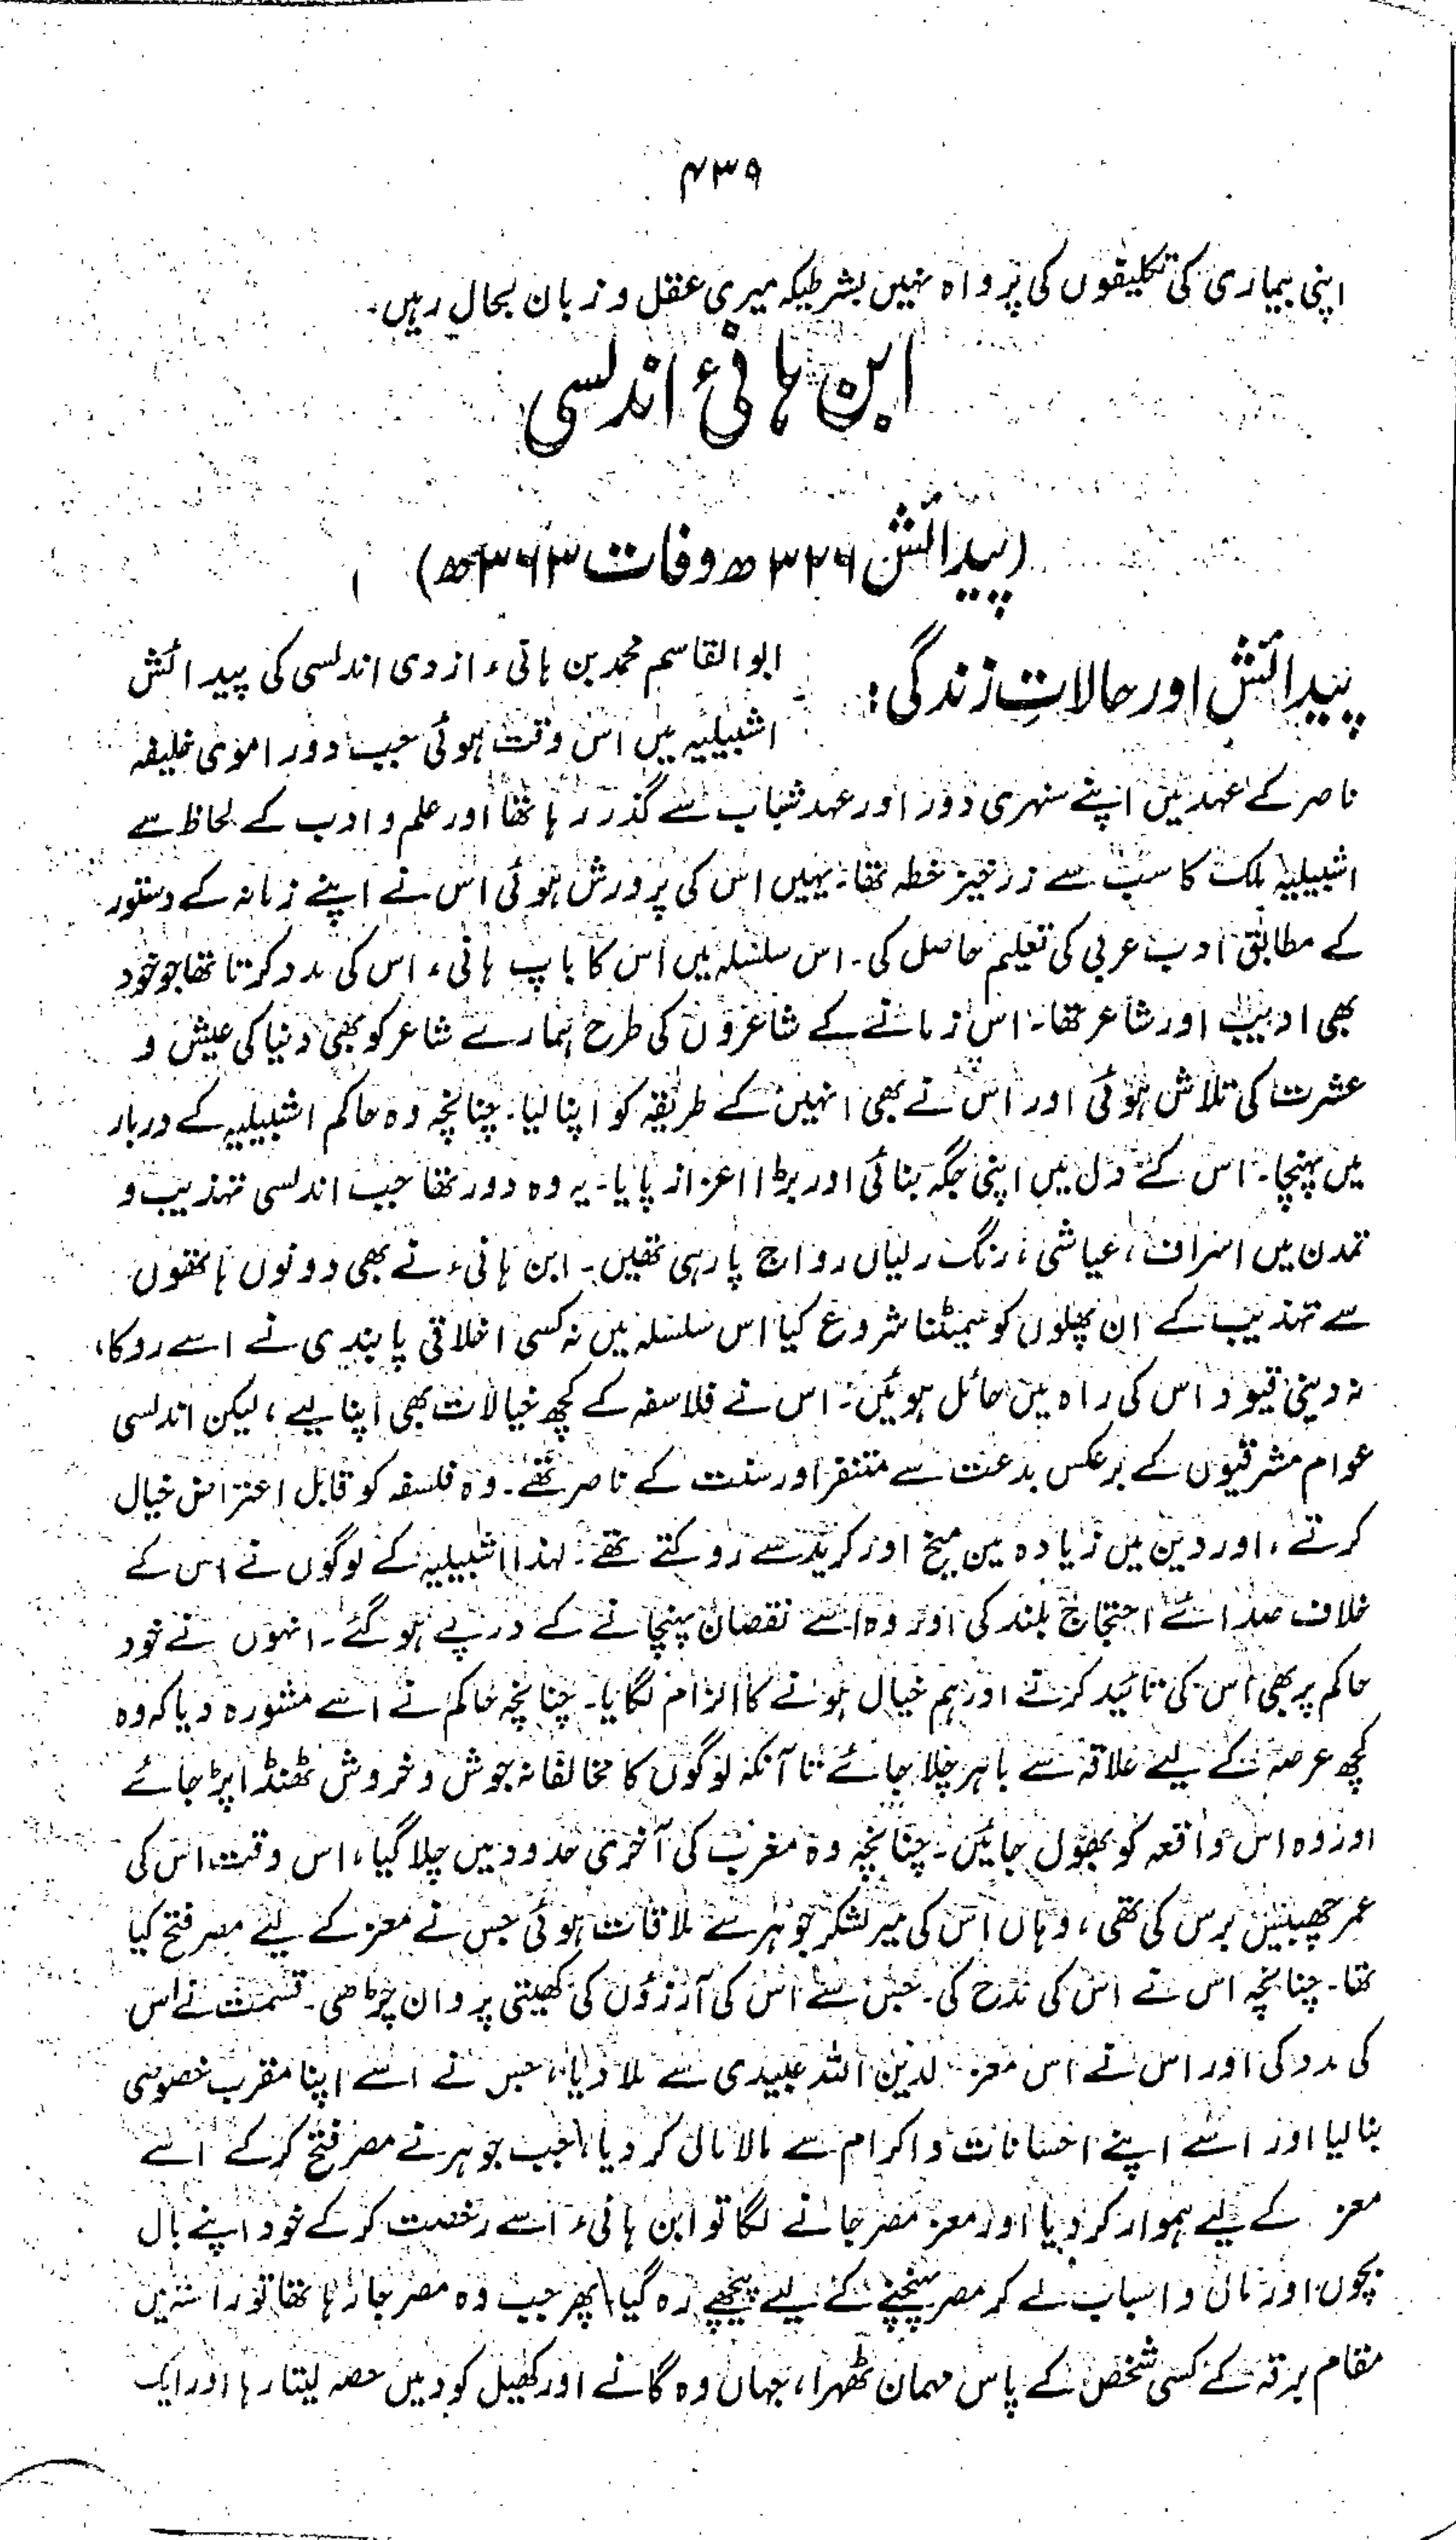 ۴۳۹
اپنی بیماری کی تکلیفوں کی پرواہ نہیں بشرطیکہ میری عقل و زبان بحال رہیں۔
ابن ہانیٔ اندلسی
(پیدائش ۳۲۶ھ وفات ۳۶۳ھ)
پیدائش اور حالاتِ زندگی:
ابوالقاسم محمد بن ہانیٔ ازدی اندلسی کی پیدائش
اشبیلیہ میں اس وقت ہوئی جب دور اموی خلیفہ
ناصر کے عہد میں اپنے سنہری دور اور عہد شباب سے گذر رہا تھا اور علم و ادب کے لحاظ سے
اشبیلیہ ملک کا سب سے زرخیز خطہ تھا۔ یہیں اس کی پرورش ہوئی اس نے اپنے زمانہ کے دستور
کے مطابق ادب عربی کی تعلیم حاصل کی۔ اس سلسلہ میں اس کا باپ ہانیٔ اس کی مدد کرتا تھا جو خود
بھی ادیب اور شاعر تھا۔ اس زمانے کے شاعروں کی طرح ہمارے شاعر کو بھی دنیا کی عیش و
عشرت کی تلاش ہوئی اور اس نے بھی انہیں کے طریقہ کو اپنا لیا۔ چنانچہ وہ حاکم اشبیلیہ کے دربار
میں پہنچا۔ اس کے دل میں اپنی جگہ بنائی اور بڑا اعزاز پایا۔ یہ وہ دور تھا جب اندلسی تہذیب و
تمدن میں اسراف، عیاشی، رنگ رلیاں رواج پا رہی تھیں۔ ابن ہانیٔ نے بھی دونوں ہاتھوں
سے تہذیب کے ان پھلوں کو سمیٹنا شروع کیا اس سلسلہ میں نہ کسی اخلاقی پابندی نے اسے روکا،
نہ دینی قیود اس کی راہ میں حائل ہوئیں۔ اس نے فلاسفہ کے کچھ خیالات بھی اپنا لیے، لیکن اندلسی
عوام مشرقیوں کے برعکس بدعت سے متنفر اور سنت کے ناصر تھے۔ وہ فلسفہ کو قابل اعتراض خیال
کرتے، اور دین میں زیادہ مین میخ اور کرید سے روکتے تھے۔ لہذا اشبیلیہ کے لوگوں نے اس کے
خلاف صدائے احتجاج بلند کی اور وہ اسے نقصان پہنچانے کے درپے ہو گئے۔ انہوں نے خود
حاکم پر بھی اس کی تائید کرنے اور ہم خیال ہونے کا الزام لگایا۔ چنانچہ حاکم نے اسے مشورہ دیا کہ وہ
کچھ عرصہ کے لیے علاقہ سے باہر چلا جائے تا آنکہ لوگوں کا مخالفانہ جوش و خروش ٹھنڈا پڑ جائے
اور وہ اس واقعہ کو بھول جائیں۔ چنانچہ وہ مغرب کی آخری حدود میں چلا گیا، اس وقت اس کی
عمر چھبیس برس کی تھی، وہاں اس کی میر لشکر جوہر سے ملاقات ہوئی جس نے معز کے لیے مصر فتح کیا
تھا۔ چنانچہ اس نے اس کی مدح کی۔ جس سے اس کی آرزؤں کی کھیتی پروان چڑھی۔ قسمت نے اس
کی مدد کی اور اس نے اس معز لدین اللہ عبیدی سے ملا دیا، جس نے اسے اپنا مقرب خصوصی
بنا لیا اور اسے اپنے احسانات و اکرام سے مالا مال کر دیا، جب جوہر نے مصر فتح کر کے اسے
معز کے لیے ہموار کر دیا اور معز مصر جانے لگا تو ابن ہانیٔ اسے رخصت کر کے خود اپنے بال
بچوں اور مال و اسباب لے کر مصر پہنچنے کے لیے پیچھے رہ گیا پھر جب وہ مصر جا رہا تھا تو راستہ میں
مقام برقہ کے کسی شخص کے پاس مہمان ٹھہرا، جہاں وہ گانے اور کھیل کود میں حصہ لیتا رہا اور ایک